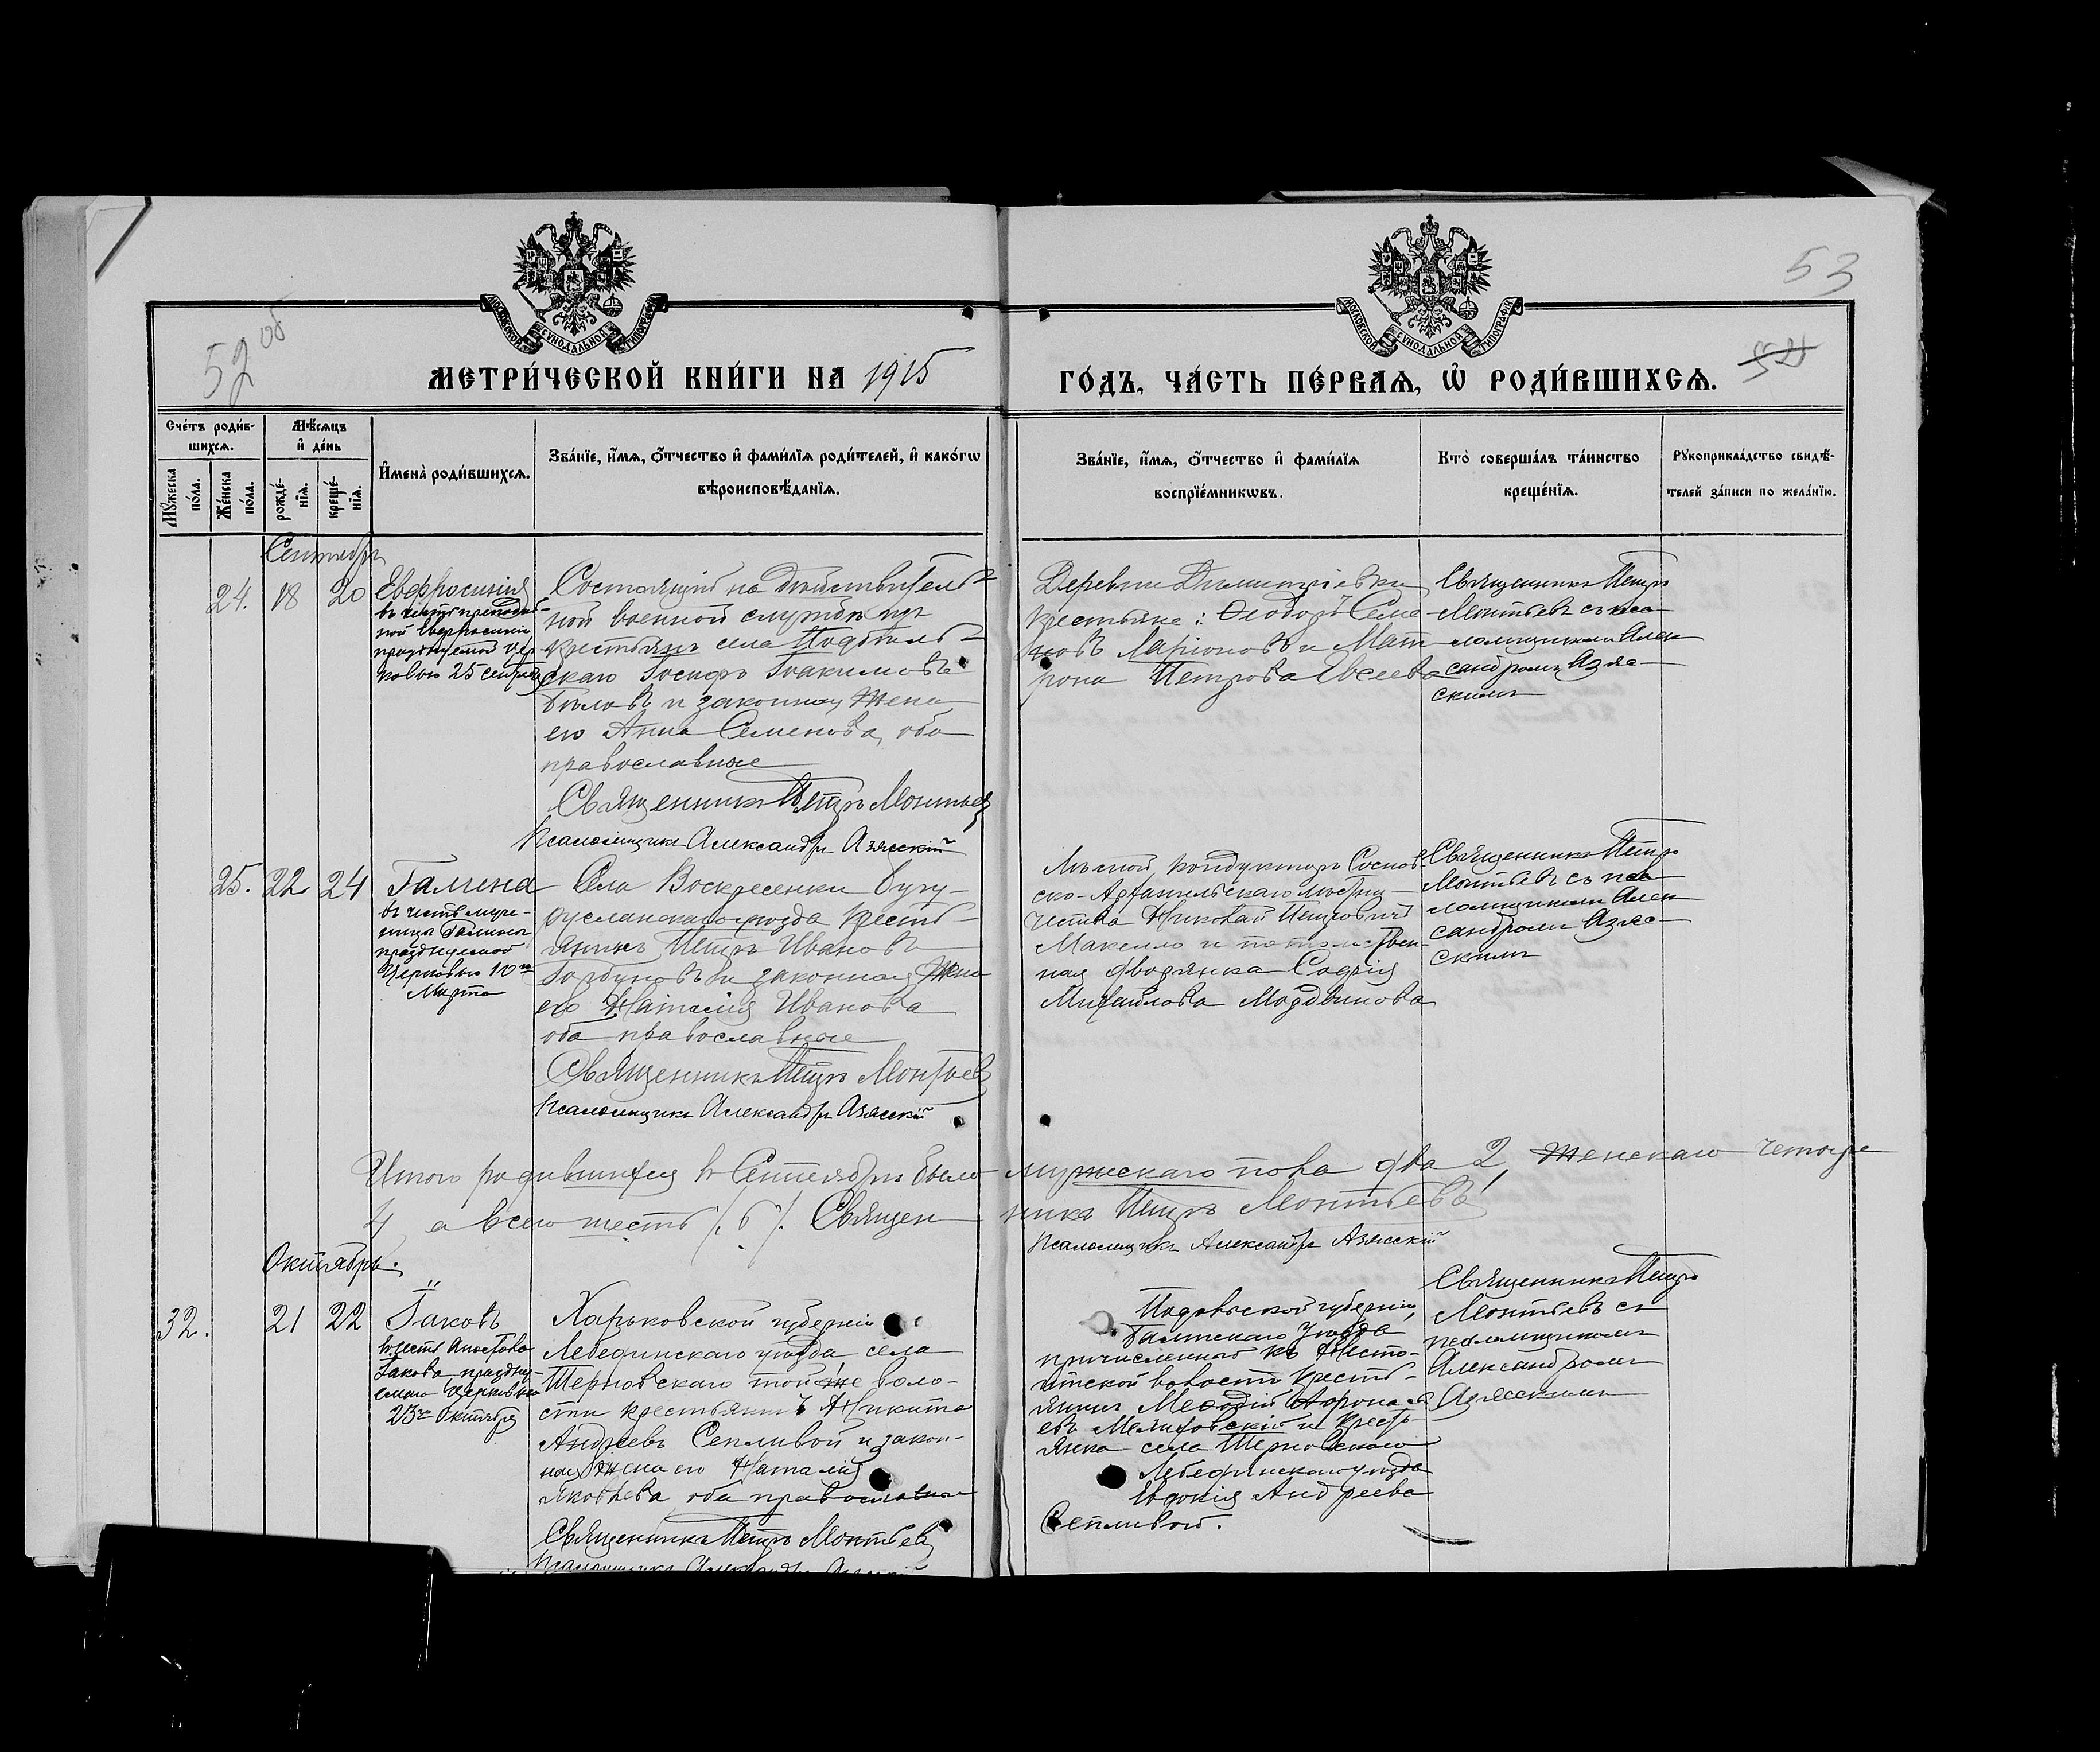 53
52 об
МОСКОВСКОЙ СѴНОДАЛЬНОЙ ТИПОГРАФІИ
МОСКОВСКОЙ СѴНОДАЛЬНОЙ ТИПОГРАФІИ
МЕТРИ́ЧЕСКОЙ КНИ́ГИ НА 1915
ГО́ДЪ, ЧА́СТЬ ПЕ́РВАЯ, Ѡ҆ РОДИ́ВШИХСЯ.
Сче́тъ роди́в-
шихся.
Мꙋ́жеска по́ла.
Же́нска по́ла.
Мѣ́сяцъ
и҆ де́нь
рожде́-
нїя.
креще́-
нїя.
И҆мена̀ роди́вшихся.
Зва́нїе, и҆́мя, ѻ҆́тчество и҆ фами́лїя роди́телей, и҆ како́гѡ
вѣроисповѣ́данїя.
Зва́нїе, и҆́мя, ѻ҆́тчество и҆ фами́лїя
воспрїе́мникѡвъ.
Кто̀ соверша́лъ та́инство
креще́нїя.
Рꙋкоприкла́дство свидѣ́-
телей за́писи по жела́нїю.
Сентябрь
24. 18 20
Евфросинія
въ честь преподоб-
ной Евфросиніи
празднуемой цер-
ковью 25 сентября
Состоящій на дѣйствитель-
ной военной службѣ изъ
крестьянъ села
скаго Іосифъ Іоакимовъ
Бѣловъ и законная жена
его Анна Семенова, оба
православные
Священникъ Петръ Леонтьевъ
Псаломщикъ Александръ Азясскій
Деревни Димитріевки
крестьяне: Ѳеодоръ Семе-
новъ Ларіоновъ и Мат-
рона Петрова Евсеева
Священникъ Петръ
Леонтьевъ съ пса-
ломщикомъ Алек-
сандромъ Азяс-
скимъ
25. 22 24
Галина
въ честь муче-
ницы Галины
празднуемой
Церковью 10го
Марта
Села Воскресенки Бугу-
русланскаго уѣзда кресть-
янинъ Петръ Ивановъ
Горбуновъ и законная жена
его Наталія Иванова
оба православные
Священникъ Петръ Леонтьевъ
Псаломщикъ Александръ Азясскій
Лѣсной кондукторъ Соснов-
ско-Архангельскаго лѣсни-
чества Николай Петровичъ
Макелло и потомствен-
ная дворянка Софія
Михаилова Мордвинова
Священникъ Петръ
Леонтьевъ съ пса-
ломщикомъ Алек-
сандромъ Азяс-
скимъ
Итого родившихся въ Сентябрѣ было мужскаго пола два 2, женскаго четыре
4 а всего шесть /6/. Священникъ Петръ Леонтьевъ
Псаломщикъ Александръ Азясскій
Октябрь.
32. 21 22
Іаковъ
въ честь Апостола
Іакова праздну-
емаго Церковью
23го Октября
Харьковской губерніи
Лебединскаго уѣзда села
Терновскаго той же воло-
сти крестьянинъ Никита
Андреевъ Сепливой и закон-
ная жена его Наталія
Яковлева, оба православные
Священникъ Петръ Леонтьевъ
Псаломщикъ Александръ Азясскій
Подольской губерніи,
Балтскаго уѣзда
причисленной къ
волости кресть-
янинъ Меѳодій
евъ и кресть-
янка села Терновскаго
Лебединскаго уѣзда
Евдокія Андреева
Сепливой.
Священникъ Петръ
Леонтьевъ съ
псаломщикомъ
Александромъ
Азясскимъ